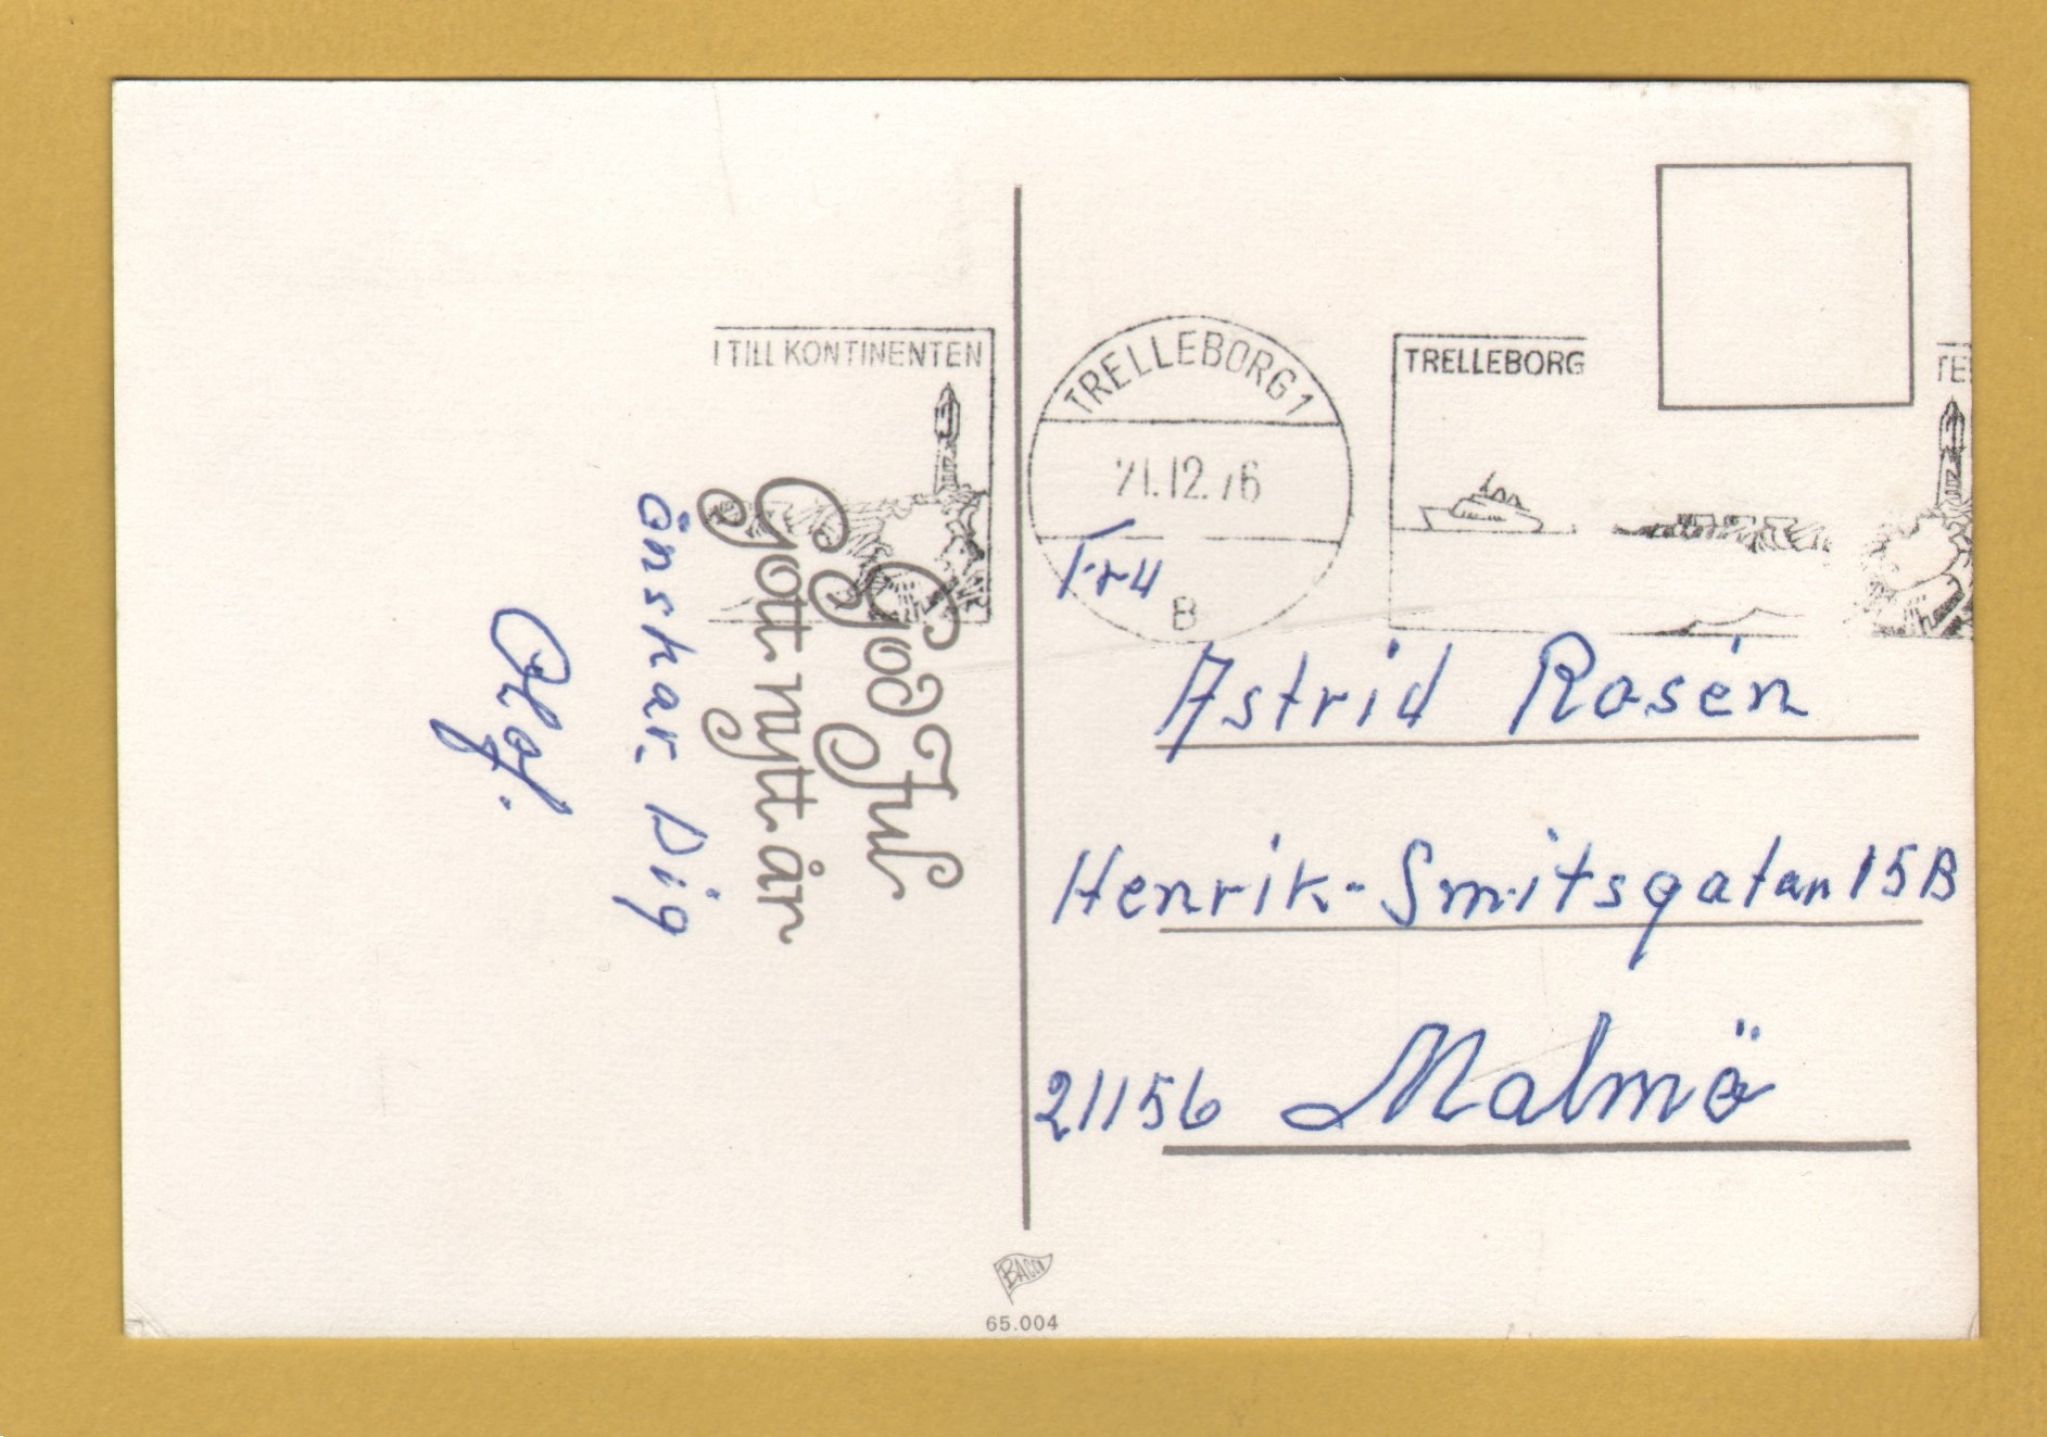 I TILL KONTINENTEN
God Jul
Gott nytt år
önskar Dig
Olof.
TRELLEBORG 1
21.12.76
B
TRELLEBORG
TE
Fru
Astrid Rosén
Henrik-Smitsgatan 15B
21156 Malmö
BACO
65.004